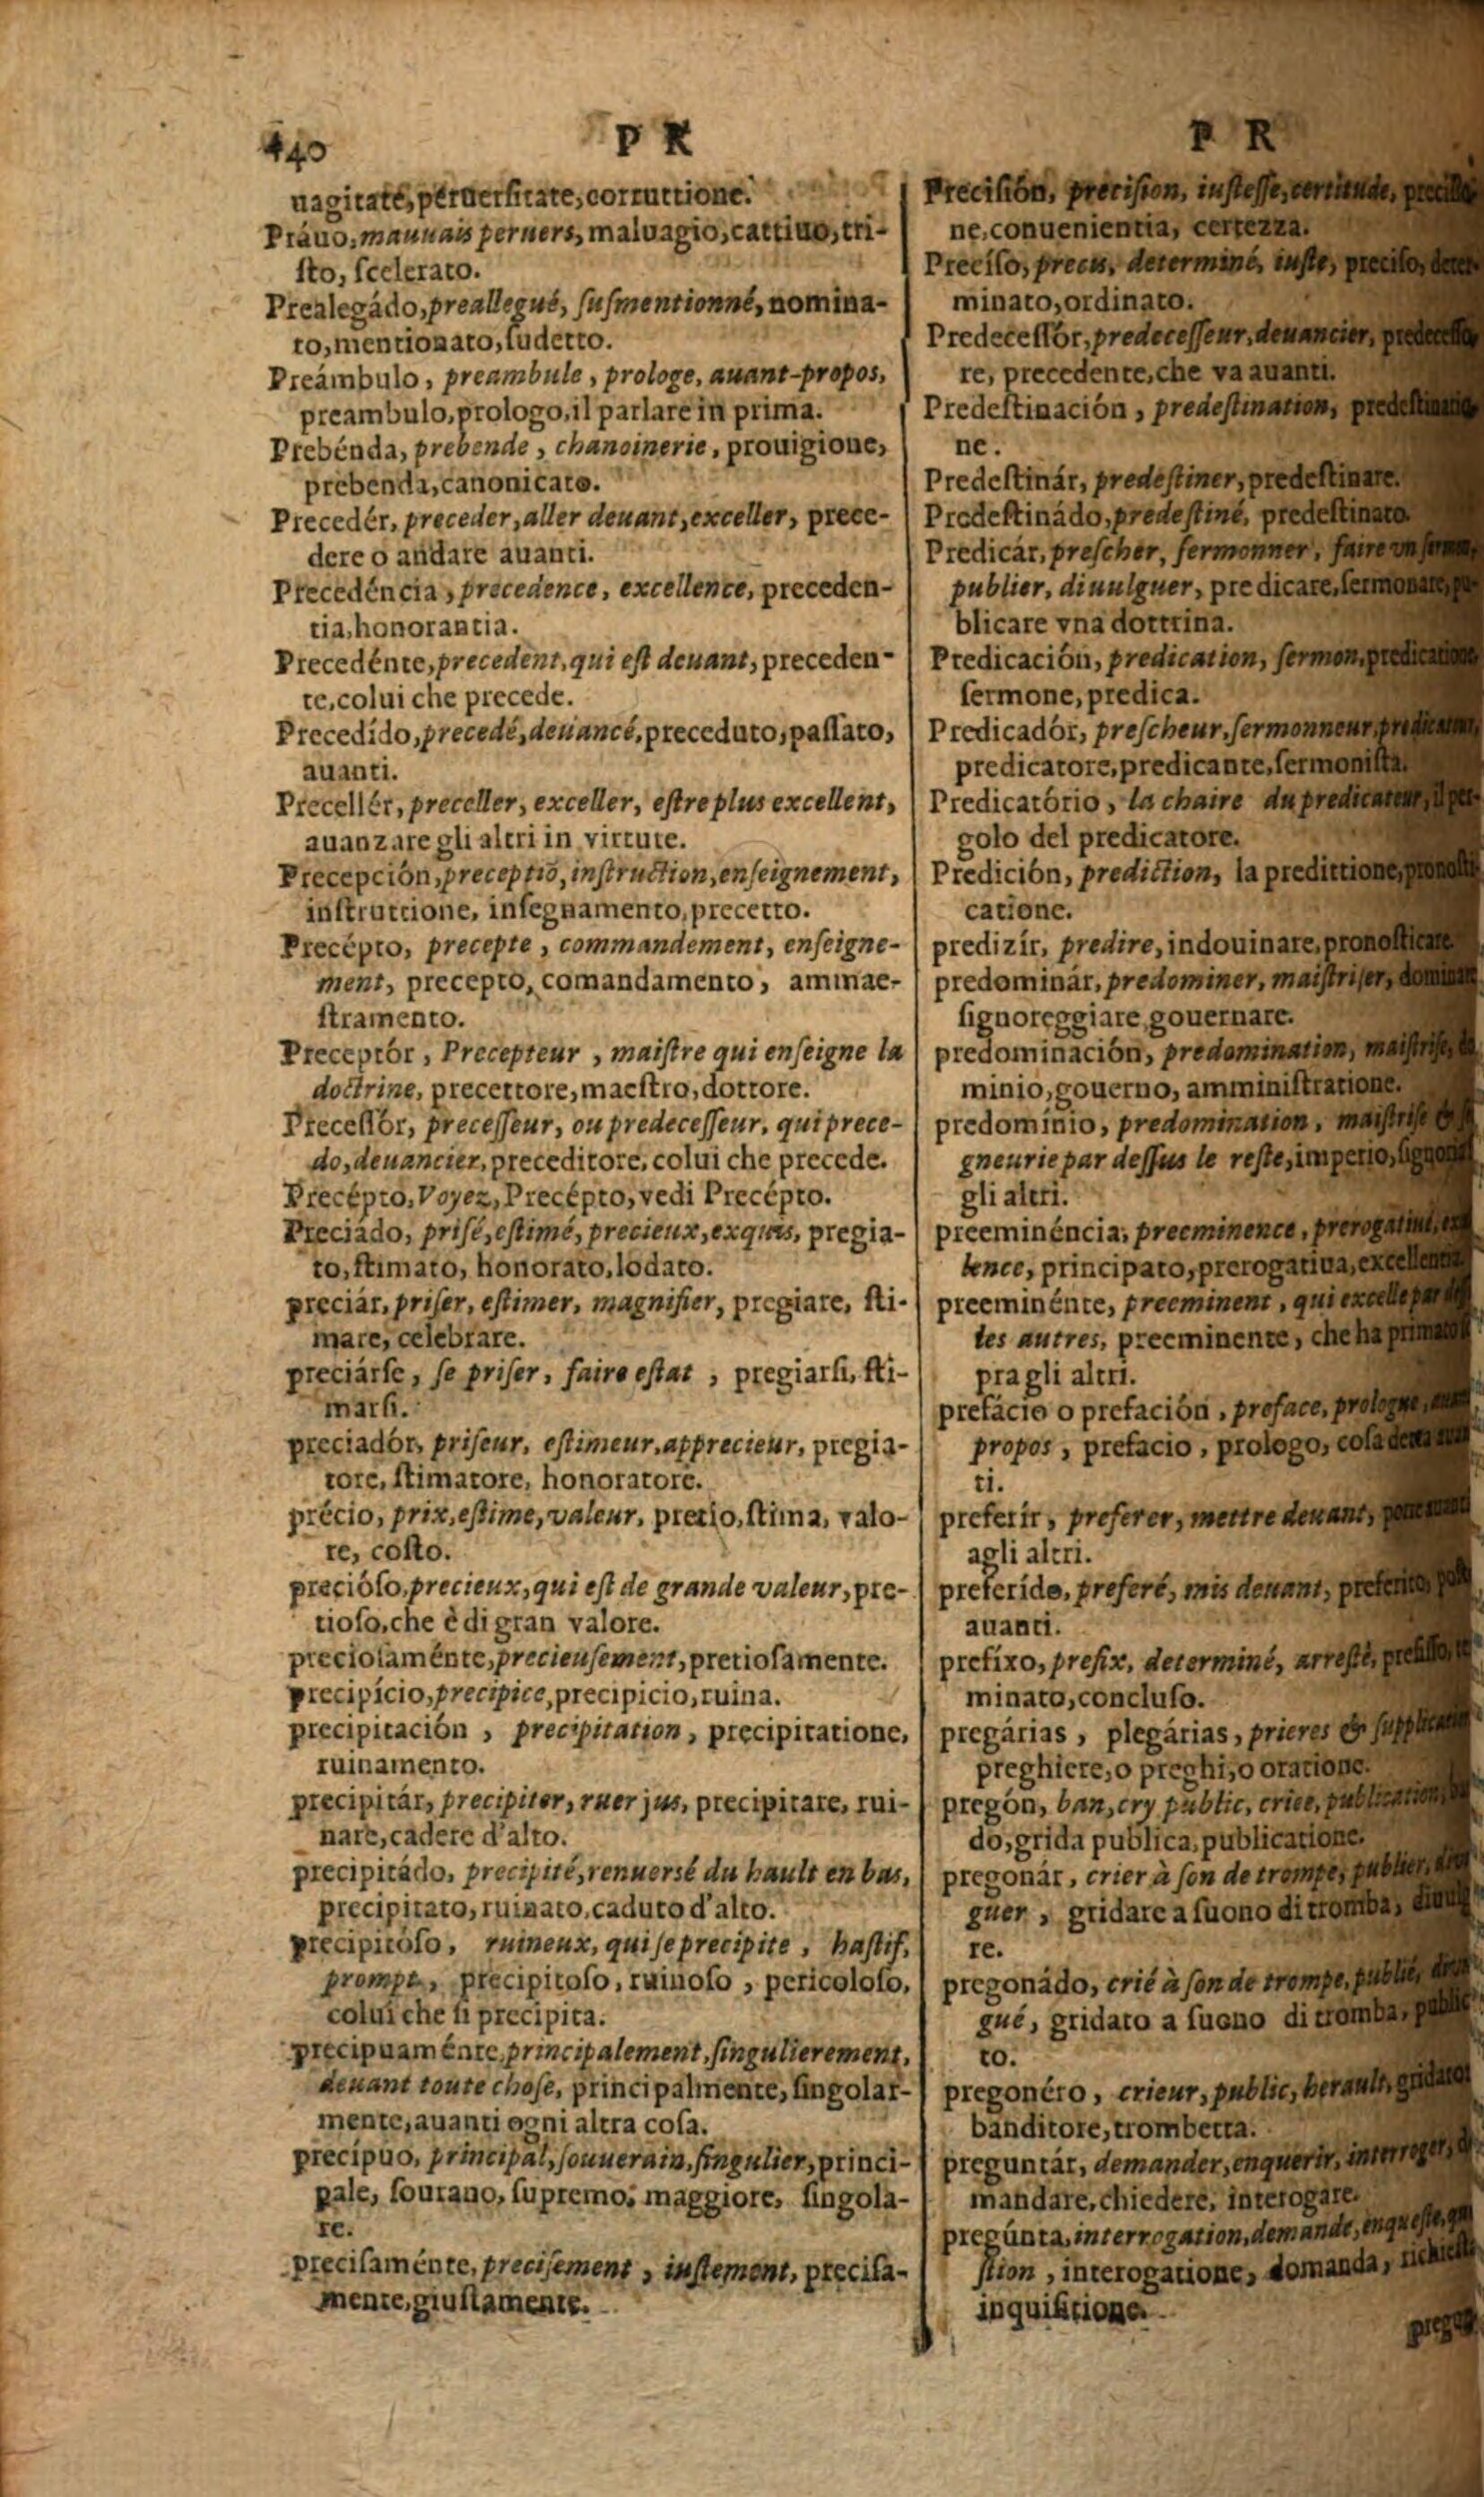 440
P R
uagitate, peruersitate, corruttione.
Práuo, mauuais peruers, maluagio, cattiuo, tri-
sto, scelerato.
Prealegádo, preallegué, susmentionné, nomina-
to, mentionato, sudetto.
Preámbulo, preambule, prologe, auant-propos,
preambulo, prologo, il parlare in prima.
Prebénda, prebende, chanoinerie, prouigione,
prebenda, canonicato.
Precedér, preceder, aller deuant, exceller, prece-
dere o andare auanti.
Precedéncia, precedence, excellence, preceden-
tia, honorantia.
Precedénte, precedent, qui est deuant, preceden-
te, colui che precede.
Precedído, precedé, deuancé, preceduto, passato,
auanti.
Precellér, preceller, exceller, estre plus excellent,
auanzare gli altri in virtute.
Precepción, preceptiō, instruction, enseignement,
instruttione, insegnamento, precetto.
Precépto, precepte, commandement, enseigne-
ment, precepto, comandamento, ammae-
stramento.
Preceptór, Precepteur, maistre qui enseigne la
doctrine, precettore, maestro, dottore.
Precessór, precesseur, ou predecesseur, qui prece-
do, deuancier, preceditore, colui che precede.
Precépto, Voyez, Precépto, vedi Precépto.
Preciádo, prisé, estimé, precieux, exquis, pregia-
to, stimato, honorato, lodato.
preciár, priser, estimer, magnifier, pregiare, sti-
mare, celebrare.
preciárse, se priser, faire estat, pregiarsi, sti-
marsi.
preciadór, priseur, estimeur, apprecieur, pregia-
tore, stimatore, honoratore.
précio, prix, estime, valeur, pretio, stima, valo-
re, costo.
precióso, precieux, qui est de grande valeur, pre-
tioso, che è di gran valore.
preciosaménte, precieusement, pretiosamente.
precipício, precipice, precipicio, ruina.
precipitación, precipitation, precipitatione,
ruinamento.
precipitár, precipiter, ruer jus, precipitare, rui-
nare, cadere d'alto.
precipitádo, precipité, renuersé du hault en bas,
precipitato, ruinato, caduto d'alto.
precipitóso, ruineux, qui se precipite, hastif,
prompt, precipitoso, ruinoso, pericoloso,
colui che si precipita.
precipuaménte, principalement, singulierement,
deuant toute chose, principalmente, singolar-
mente, auanti ogni altra cosa.
precípuo, principal, souuerain, singulier, princi-
pale, sourano, supremo, maggiore, singola-
re.
precisaménte, precisement, iustement, precisa-
mente, giustamente.
P R
Precisión, precision, iustesse, certitude,
ne, conuenientia, certezza.
Preciso, precis, determiné, iuste, preciso, deter-
minato, ordinato.
Predecessór, predecesseur, deuancier, predecesso-
re, precedente, che va auanti.
Predestinación, predestination, predestinatio-
ne.
Predestinár, predestiner, predestinare.
Predestinádo, predestiné, predestinato.
Predicár, prescher, sermonner, faire vn sermon,
publier, diuulguer, predicare, sermonare, pu-
blicare vna dottrina.
Predicación, predication, sermon, predicatione,
sermone, predica.
Predicadór, prescheur, sermonneur,
predicatore, predicante, sermonista.
Predicatório, la chaire du predicateur, il per-
golo del predicatore.
Predición, prediction, la predittione, pronosti-
catione.
predizír, predire, indouinare, pronosticare.
predominár, predominer, maistriser,
signoreggiare, gouernare.
predominación, predomination, maistrise, do
minio, gouerno, amministratione.
predomínio, predomination, maistrise &
gneurie par dessus le reste, imperio,
gli altri.
preeminéncia, preeminence,
lence, principato, prerogatiua, excellentia.
preeminénte, preeminent, qui excelle par
les autres, preeminente, che ha
pra gli altri.
prefácio o prefación, preface, prologue,
propos, prefacio, prologo, cosa
ti.
preferír, preferer, mettre deuant,
agli altri.
preferído, preferé, mis deuant, preferito,
auanti.
prefíxo, prefix, determiné, arresté,
minato, concluso.
pregárias, plegárias, prieres &
preghiere, o preghi, o oratione.
pregón, ban, cry public, criee, publication,
do, grida publica, publicatione.
pregonár, crier à son de trompe, publier,
guer, gridare a suono di tromba,
re.
pregonádo, crié à son de trompe, publié,
gué, gridato a suono di tromba,
to.
pregonéro, crieur, public, herault,
banditore, trombetta.
preguntár, demander, enquerir, interroger,
mandare, chiedere, interogare.
pregúnta, interrogation, demande, enqueste,
stion, interogatione, domanda,
inquisitione.